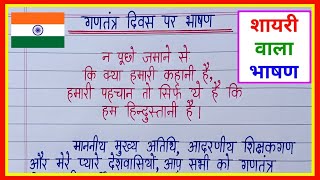 गणतंत्र दिवस पर भाषण
शायरी
वाला
भाषण
न पूछो जमाने से
कि क्या हमारी कहानी है,
हमारी पहचान तो सिर्फ ये है कि
हम हिन्दुस्तानी है।
माननीय मुख्य अतिथि, आदरणीय शिक्षकगण
और मेरे प्यारे देशवासियों, आप सभी को गणतंत्र